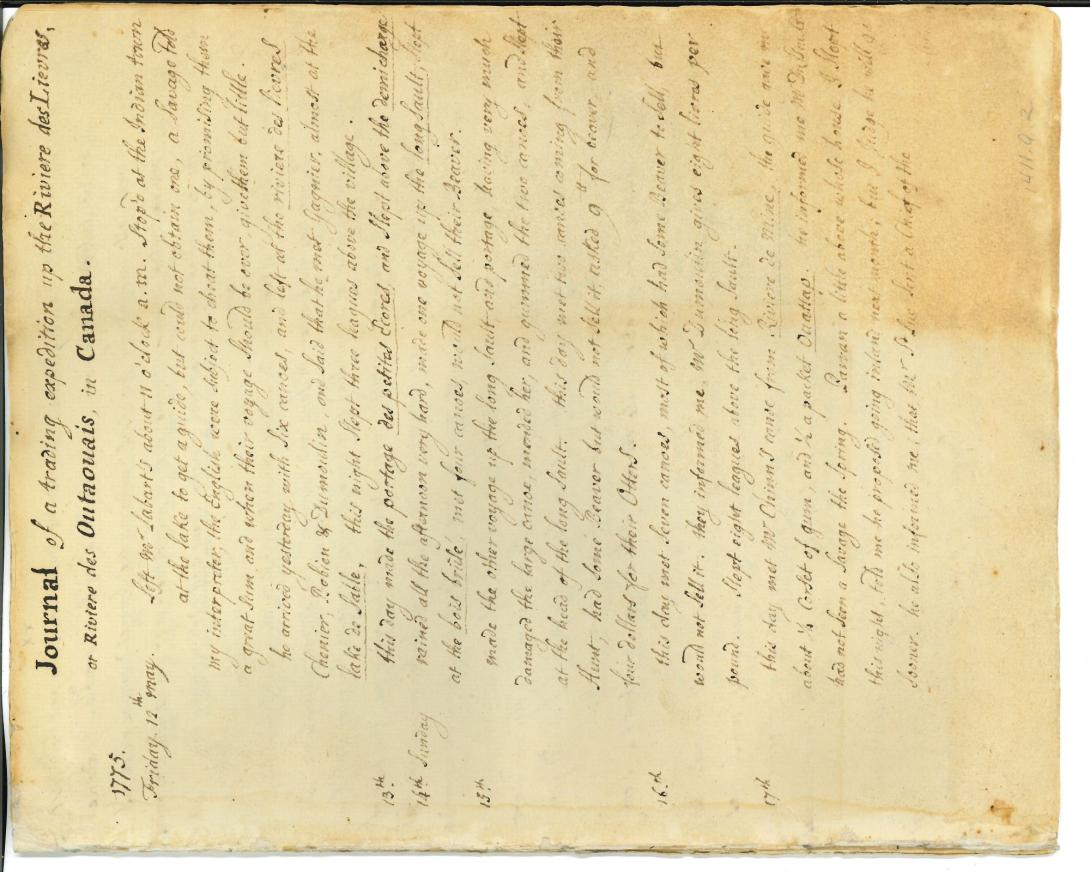 Journal of a trading expedition up the Riviere des Lievres,
or Riviere des Outaouais, in Canada.
1775.
Friday. 12th may. Left Mr Labart's about 11 o'clock a.m. Stop'd at the Indian town
at the lake to get a guide, but could not obtain one, a Savage told
my interpreter, the English were subject to cheat them, by promising them
a great Sum and when their voyage Should be over give them but little.
he arrived yesterday with Six canoes, and left at the riviere des lievres
Chenier, Robion & Dumoulin, and Said that he met Gagnier, almost at the
lake de Sable, this night Slept three leagues above the village.
13th this day made the portage des petites Ecores and Slept above the demicharge
14th Sunday rained all the afternoon very hard, made one voyage up the long Sault Slept
at the bois brûlé, met four canoes, would not Sell their Beaver.
15th made the other voyage up the long Sault and portage having very much
damaged the large canoe, mended her, and gummed the two canoes, and Slept
at the head of the long Sault. this day met two canoes coming from their
Hunt, had Some Beaver but would not Sell it, asked 9tt for beaver, and
four dollars for their Otters.
16th this day met Seven canoes, most of which had Some Beaver to Sell, but
would not Sell it. they informed me, Mr Dumoulin gives eight livres per
pound. Slept eight leagues above the long Sault.
17th this day met Mr Chinn's canoe from Riviere de Mine, the guide gave me
about ½ Corset of gum, and a packet Ouattap. he informed me Mr
had not Seen a Savage the Spring. a little above whose house I Slept
this night, told me he proposed going inland next month, but I judge he will go
Sooner. he also informed me, that Mr St Luc Sent a Chief of the
141.9.2